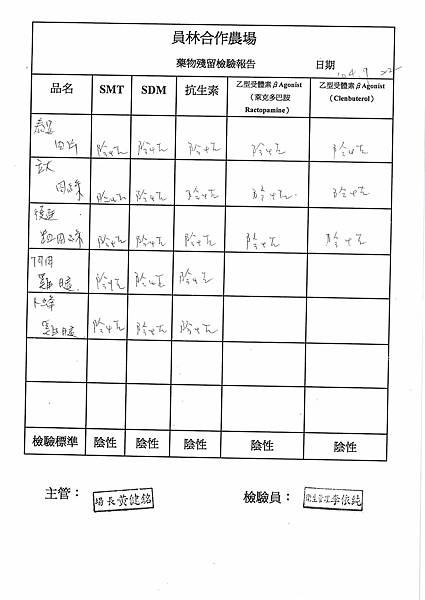 員林合作農場
藥物殘留檢驗報告 日期 104.9.22
品名 SMT SDM 抗生素 乙型受體素βAgonist（萊克多巴胺Ractopamine） 乙型受體素βAgonist（Clenbuterol）
肉片 陰性 陰性 陰性 陰性 陰性
肉絲 陰性 陰性 陰性 陰性 陰性
粗肉絲 陰性 陰性 陰性 陰性 陰性
雞腿 陰性 陰性 陰性
卜蜂
雞腿 陰性 陰性 陰性
檢驗標準 陰性 陰性 陰性 陰性 陰性
主管： 場長黃健銘 檢驗員： 衛生管理李依純